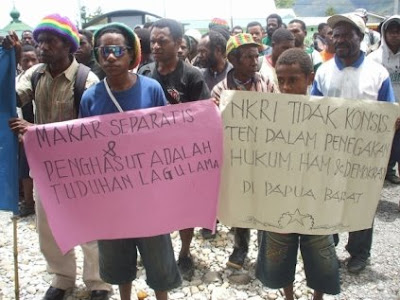 MAKAR SEPARATIS
&
PENGHASUT ADALAH
TUDUHAN LAGU LAMA
NKRI TIDAK KONSIS
TEN DALAM PENEGAKA
HUKUM, HAM & DEMOKRA
DI PAPUA BARAT